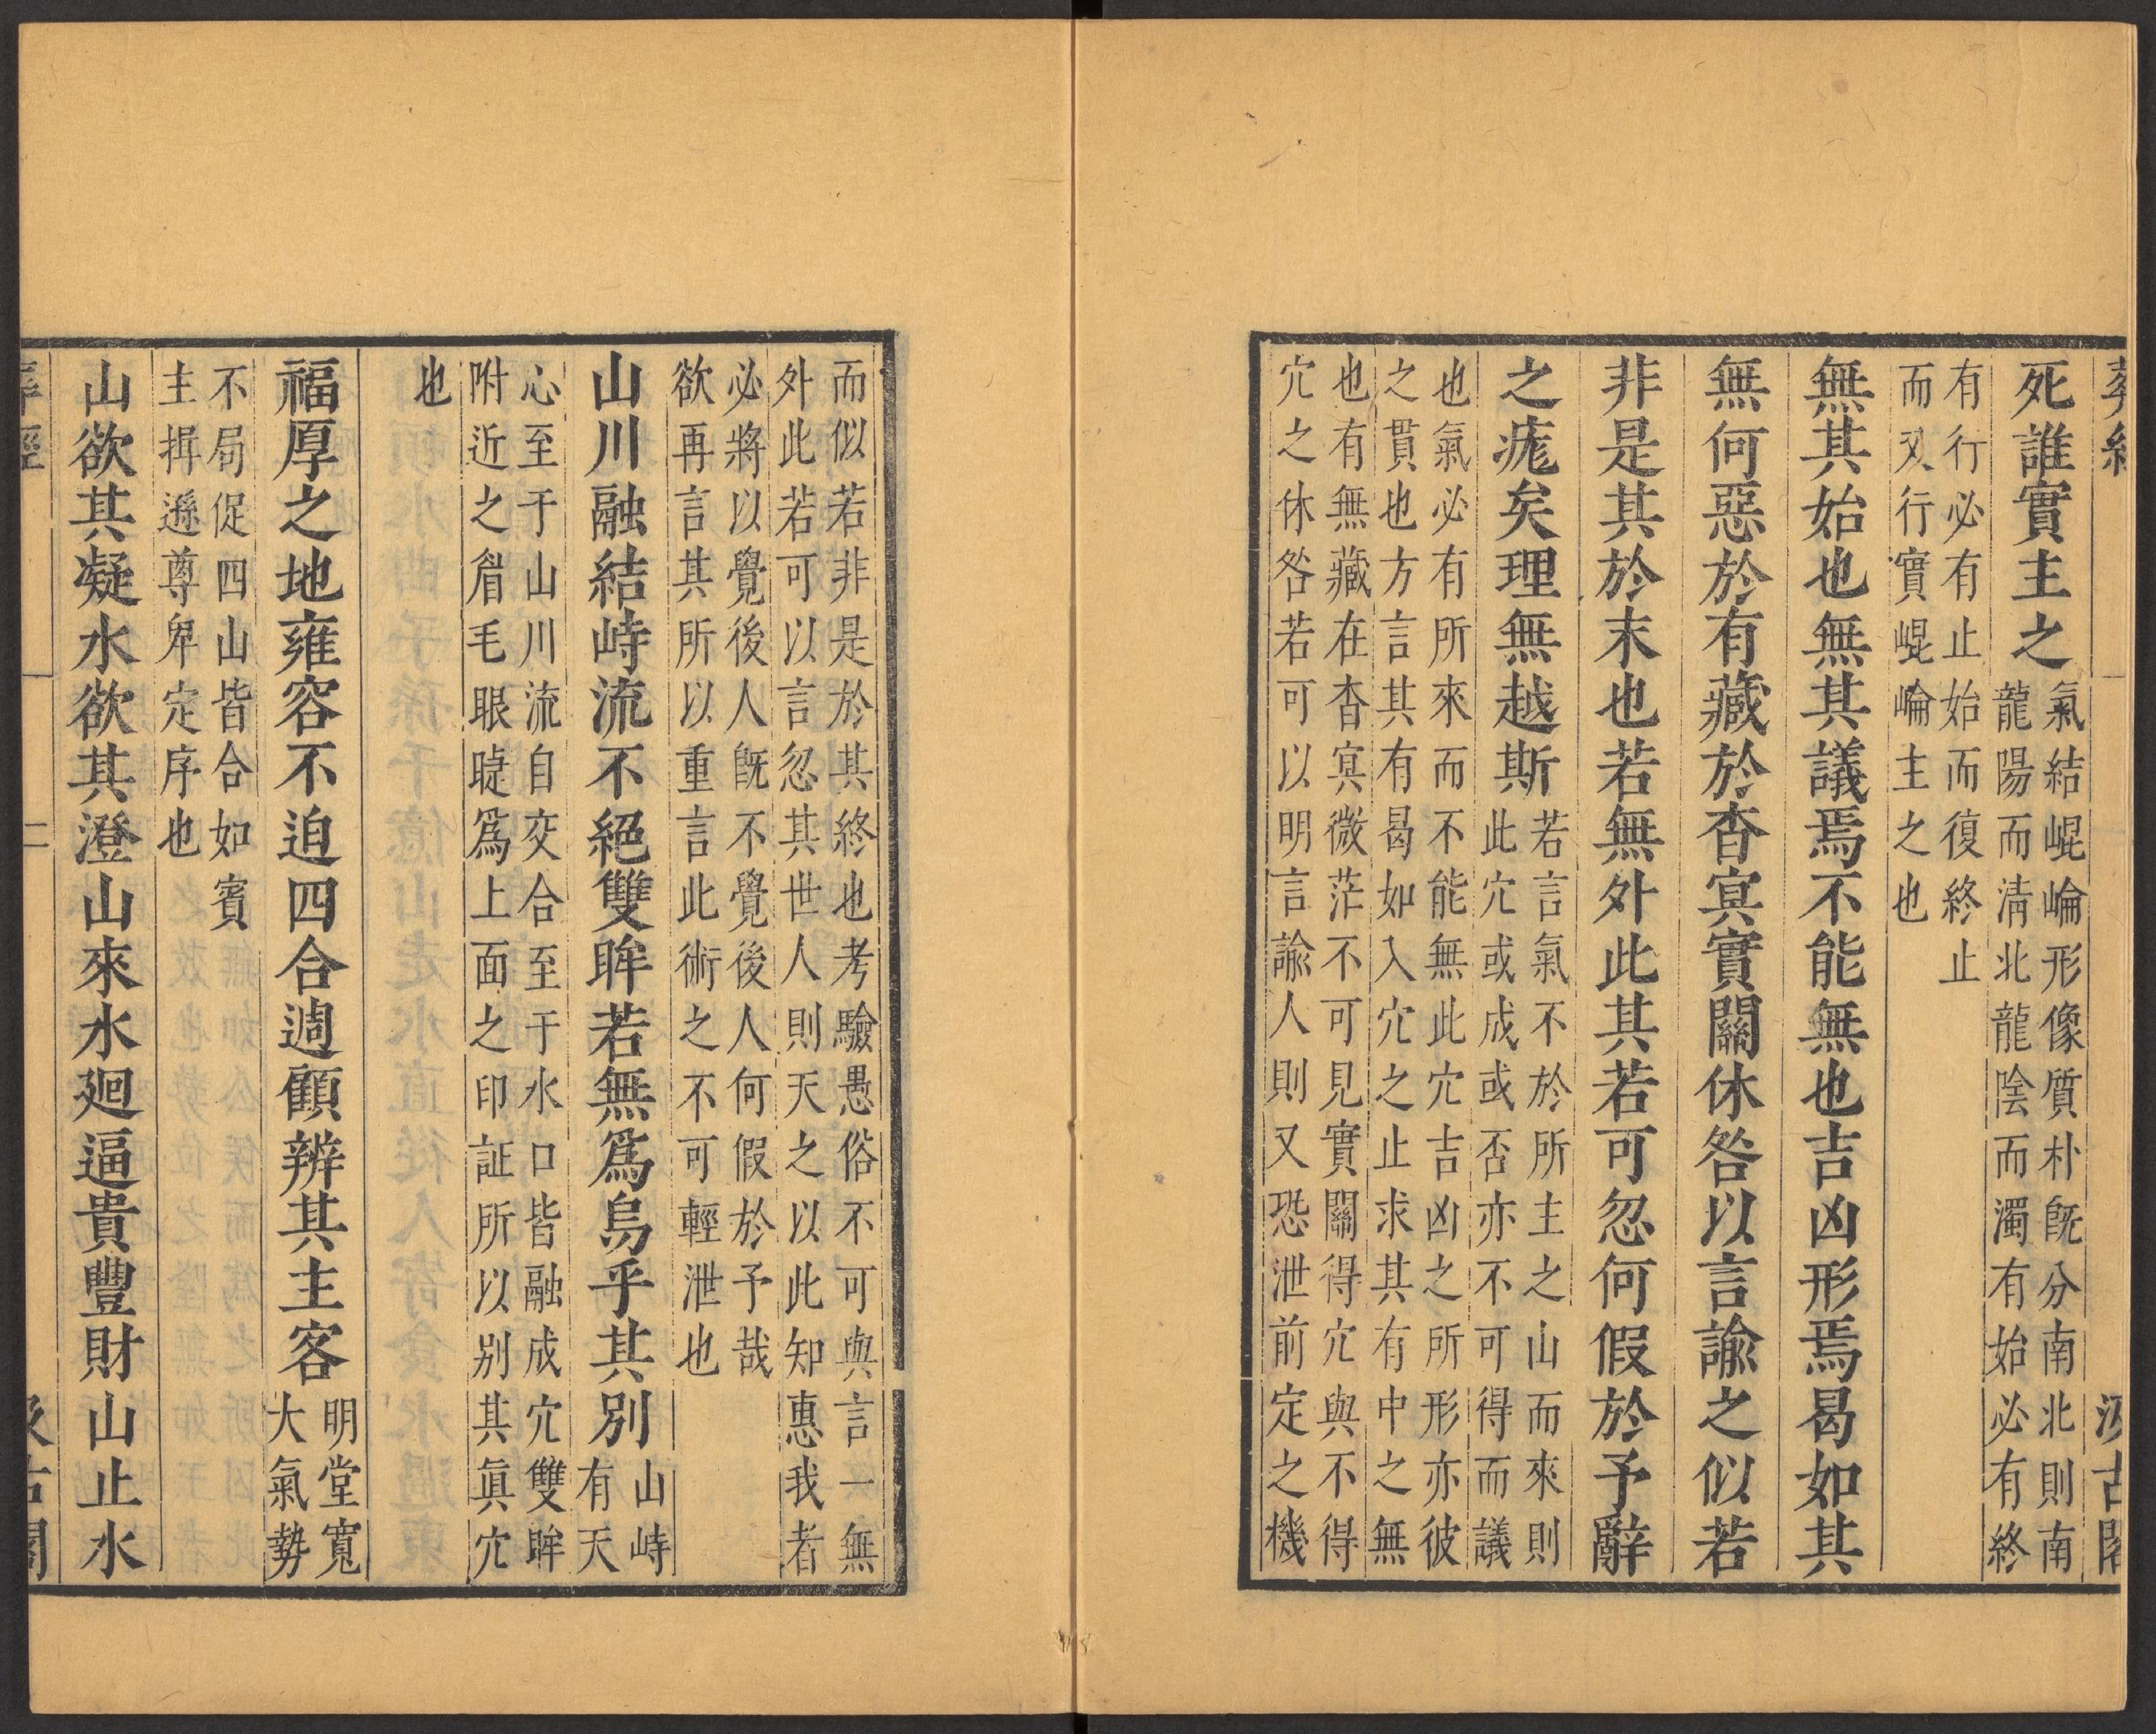 死誰實主之氣結崐崘形像質朴既分南北則南
龍陽而淸北龍陰而濁有始必有終
有行必有止始而復終止
而又行實崐崘主之也
無其始也無其議焉不能無也吉凶形焉曷如其
無何惡於有藏於杳冥實關休咎以言諭之似若
非是其於末也若無外此其若可忽何假於予辭
之疣矣理無越斯若言氣不於所主之山而來則
此穴或成或否亦不可得而議
也氣必有所來而不能無此穴吉凶之所形亦彼
之貫也方言其有曷如入穴之止求其有中之無
也有無藏在杳冥微茫不可見實關得穴與不得
穴之休咎若可以明言諭人則又恐泄前定之機
汲古閣
而似若非是於其終也考驗愚俗不可與言一無
外此若可以言忽其世人則天之以此知惠我者
必將以覺後人既不覺後人何假於予哉
欲再言其所以重言此術之不可輕泄也
山川融結峙流不絕雙眸若無爲烏乎其別山峙
有天
心至于山川流自交合至于水口皆融成穴雙眸
附近之眉毛眼睫爲上面之印証所以別其眞穴
也
福厚之地雍容不迫四合週顧辨其主客明堂寬
大氣勢
不局促四山皆合如賓
主揖遜尊卑定序也
山欲其凝水欲其澄山來水廻逼貴豐財山止水
二